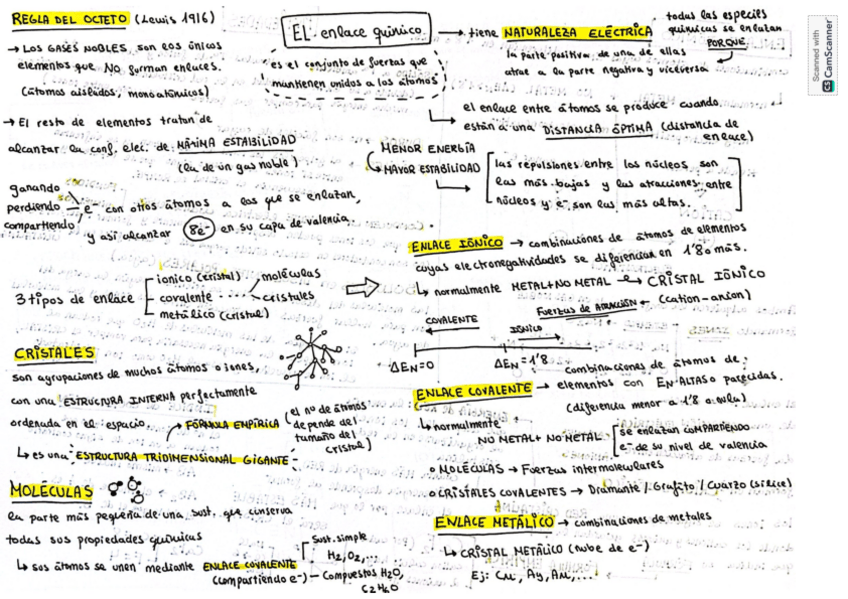 REGLA DEL OCTETO (Lewis 1916)
→ Los GASES NOBLES son los únicos
elementos que NO forman enlaces.
(átomos aislados, monoatómicos)
→ El resto de elementos tratan de
alcanzar la conf. elec. de MÁXIMA ESTABILIDAD
(la de un gas noble)
ganando
perdiendo e⁻ con otros átomos a los que se enlazan,
compartiendo
y así alcanzar 8e⁻ en su capa de valencia.
3 tipos de enlace
ionico (cristal)
covalente ····· moléculas
cristales
metálico (cristal)
CRISTALES
son agrupaciones de muchos átomos o iones,
con una ESTRUCTURA INTERNA perfectamente
ordenada en el espacio.
→ FÓRMULA EMPÍRICA (el nº de átomos
depende del
tamaño del
cristal)
↳ es una ESTRUCTURA TRIDIMENSIONAL GIGANTE
MOLÉCULAS
la parte más pequeña de una sust. que conserva
todas sus propiedades químicas
↳ sus átomos se unen mediante ENLACE COVALENTE
(compartiendo e⁻)
Sust. simple
H₂, O₂,...
Compuestos H₂O,
C₂H₆O
EL enlace químico
es el conjunto de fuerzas que
mantienen unidos a los átomos
→ tiene NATURALEZA ELÉCTRICA
todas las especies
químicas se enlazan
PORQUE
la parte positiva de una de ellas
atrae a la parte negativa y viceversa
el enlace entre átomos se produce cuando
están a una DISTANCIA ÓPTIMA (distancia de
enlace)
MENOR ENERGÍA
MAYOR ESTABILIDAD
las repulsiones entre los núcleos son
las más bajas y las atracciones entre
núcleos y e⁻ son las más altas.
ENLACE IÓNICO → combinaciones de átomos de elementos
cuyas electronegatividades se diferencian en 1'8 o más.
↳ normalmente METAL + NO METAL → CRISTAL IÓNICO
Fuerzas de ATRACCIÓN ← (cation-anion)
COVALENTE
IÓNICO
ΔEN=0
ΔEN=1'8
ENLACE COVALENTE → combinaciones de átomos de
elementos con EN ALTAS o parecidas.
(diferencia menor a 1'8 o nula)
↳ normalmente
NO METAL + NO METAL
se enlazan COMPARTIENDO
e⁻ de su nivel de valencia
○ MOLÉCULAS → Fuerzas intermoleculares
○ CRISTALES COVALENTES → Diamante / Grafito / Cuarzo (sílice)
ENLACE METÁLICO → combinaciones de metales
↳ CRISTAL METÁLICO (nube de e⁻)
Ej: Cu, Ag, Au,...
Scanned with
CS CamScanner